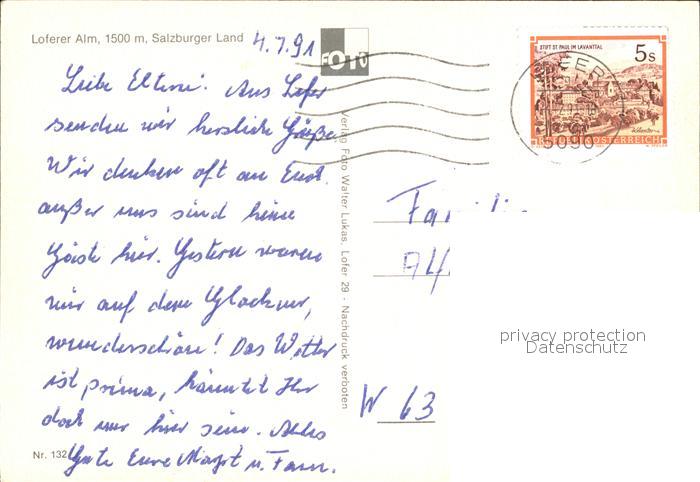 Loferer Alm, 1500 m, Salzburger Land
4.7.91
FOTO
Liebe Eltern! Aus Lofer
senden wir herzliche Grüße.
Wir denken oft an Euch.
außer uns sind keine
Gäste hier. Gestern waren
wir auf dem Glockner,
wunderschön! Das Wetter
ist prima, könntet Ihr
doch nur hier sein. Alles
Gute Eure u. Fam.
Nr. 132
Verlag Foto Walter Lukas, Lofer 29 - Nachdruck verboten
STIFT ST. PAUL IM LAVANTTAL
5s
REPUBLIK ÖSTERREICH
LOFER
5090
W 63
privacy protection
Datenschutz